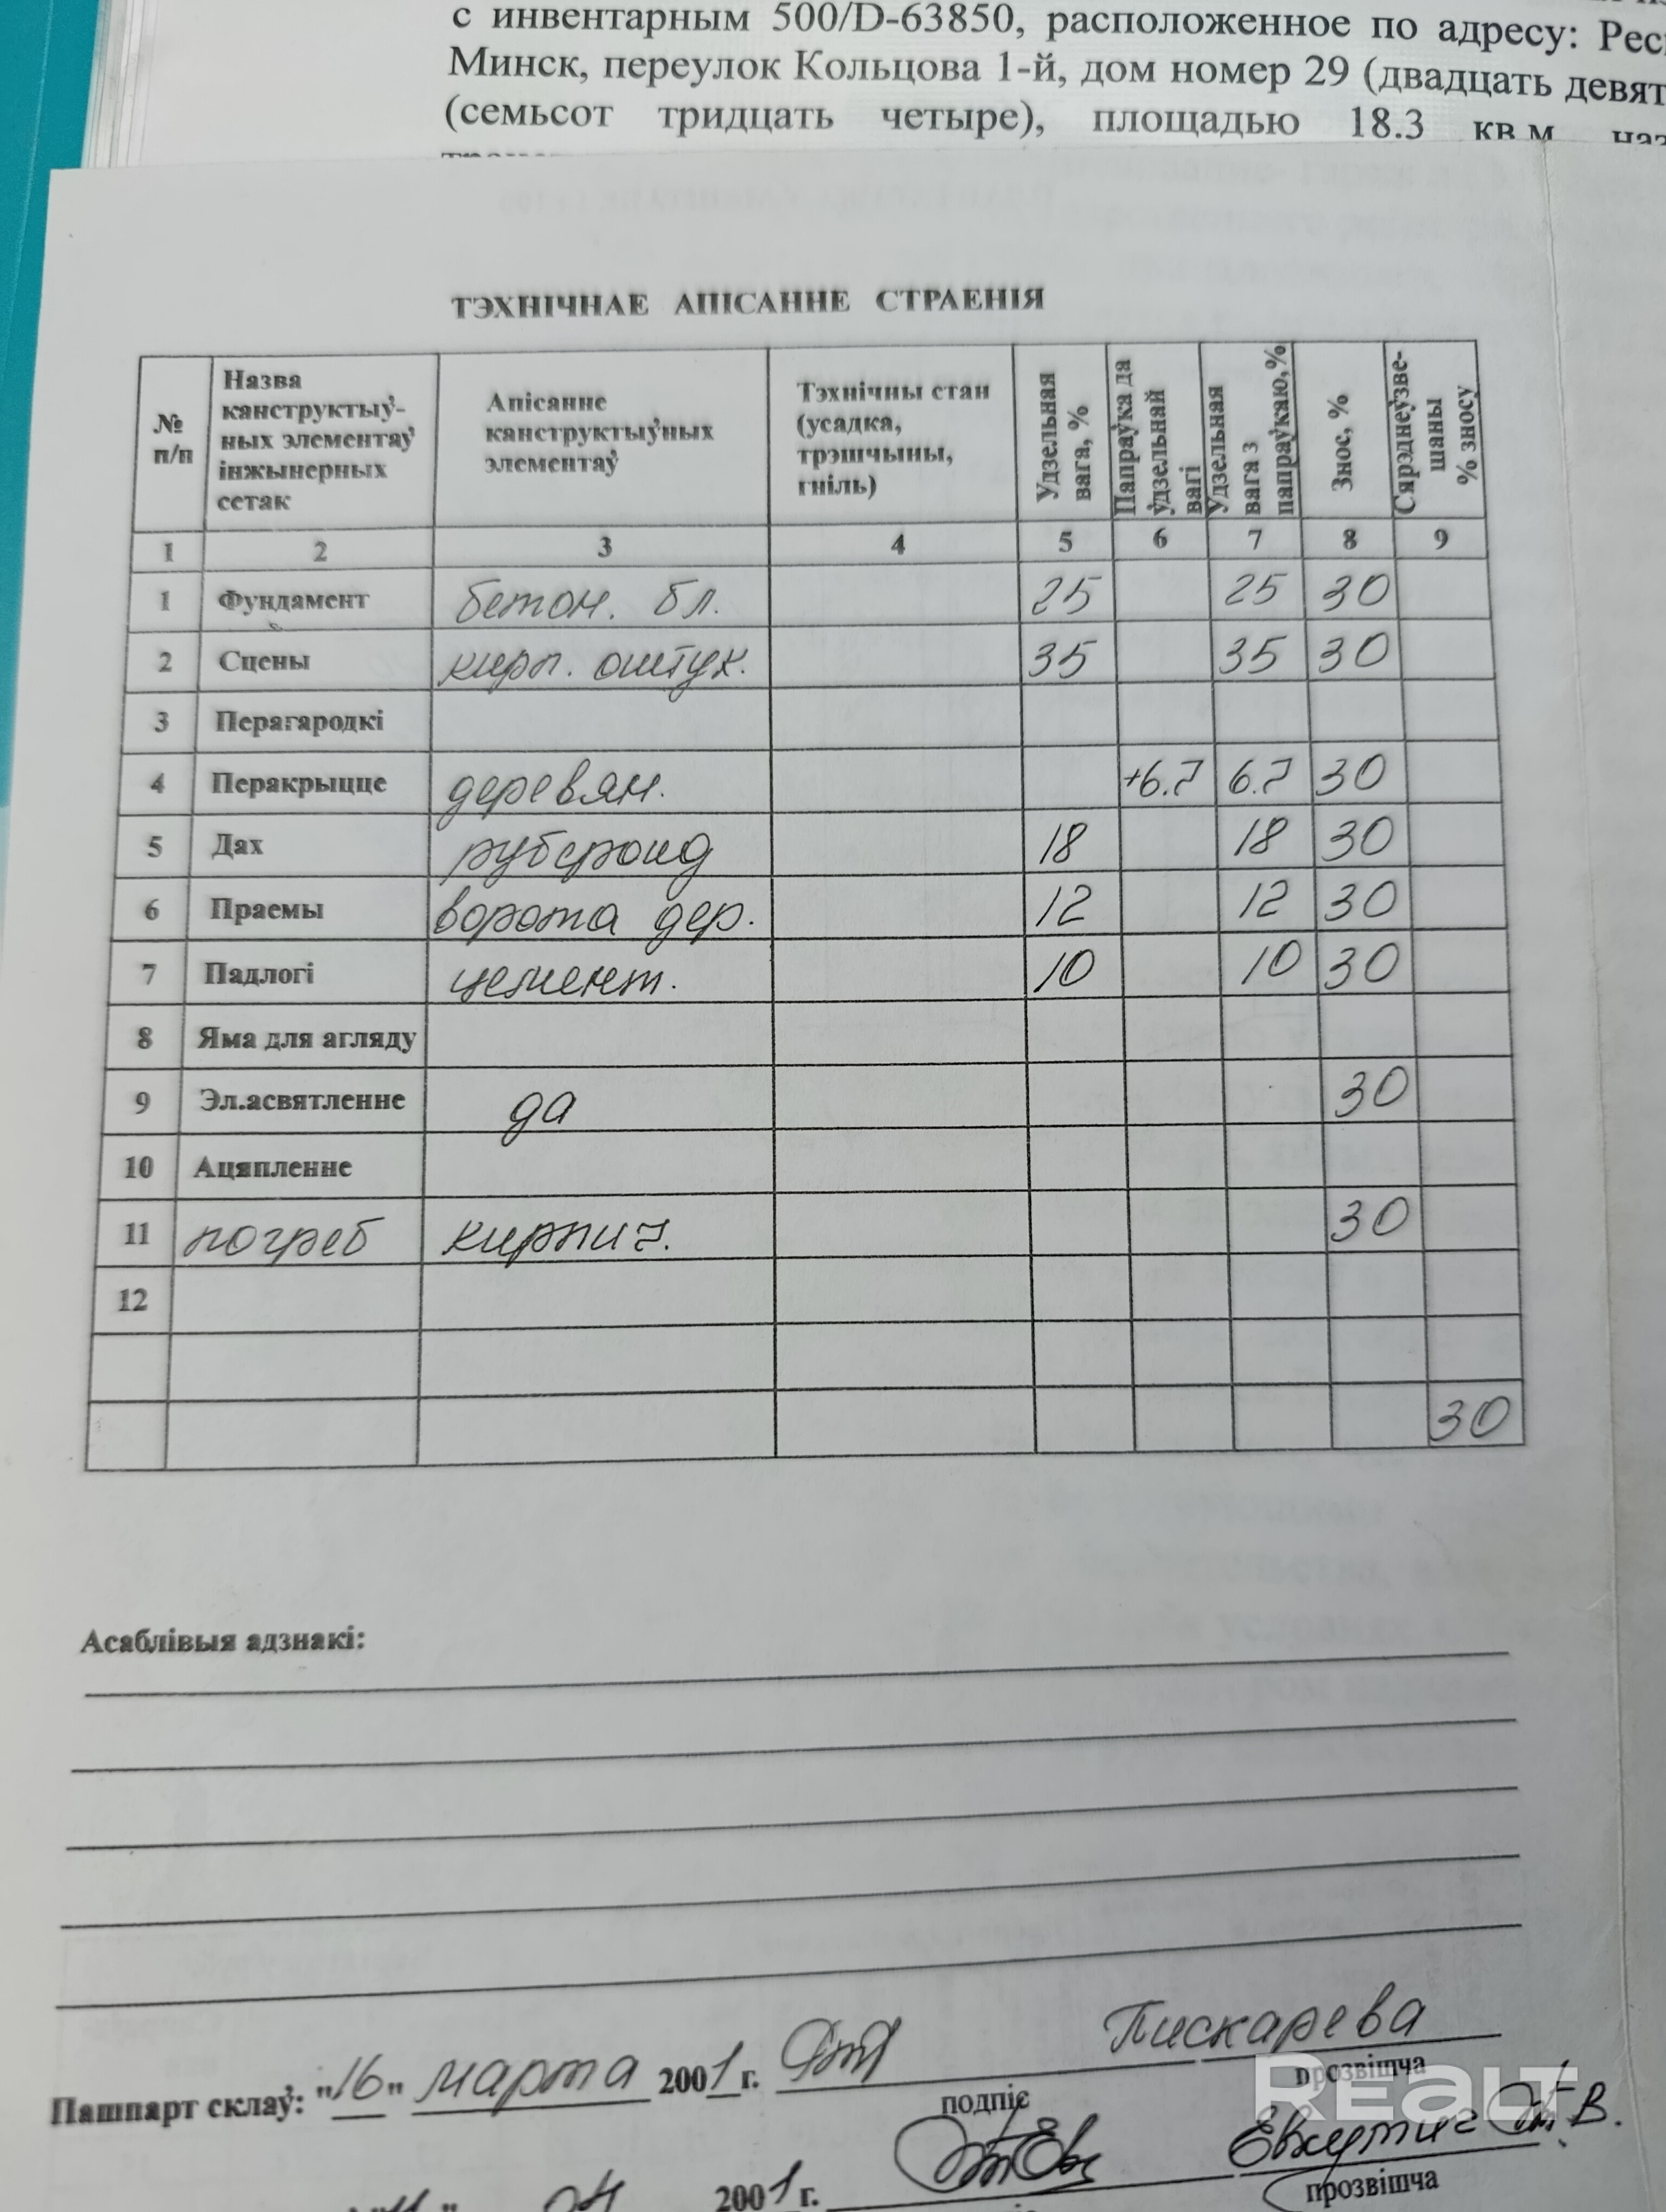 с инвентарным 500/D-63850, расположенное по адресу:
Минск, переулок Кольцова 1-й, дом номер 29 (двадцать
(семьсот тридцать четыре), площадью 18.3 кв.м
ТЭХНІЧНАЕ АПІСАННЕ СТРАЕНІЯ
№ п/п
Назва канструктыў-
ных элементаў
інжынерных
сетак
Апісанне
канструктыўных
элементаў
Тэхнічны стан
(усадка,
трэшчыны,
гніль)
Удзельная
вага, %
Папраўка да
ўдзельнай
вагі
Удзельная
вага з
папраўкаю,%
Знос, %
Сярэднеўзве-
шаны
% зносу
1 2 3 4 5 6 7 8 9
1 Фундамент бетон. бл. 25 25 30
2 Сцены кирп. оштук. 35 35 30
3 Перагародкі
4 Перакрыцце деревян. +6.7 6.7 30
5 Дах рубероид 18 18 30
6 Праемы ворота дер. 12 12 30
7 Падлогі цемент. 10 10 30
8 Яма для агляду
9 Эл.асвятленне да 30
10 Ацяпленне
11 погреб кирпич. 30
12
30
Асаблівыя адзнакі:
Пашпарт склаў: "16" марта 2001г. Пискарева
подпіс прозвішча
REALT
2001г.
прозвішча